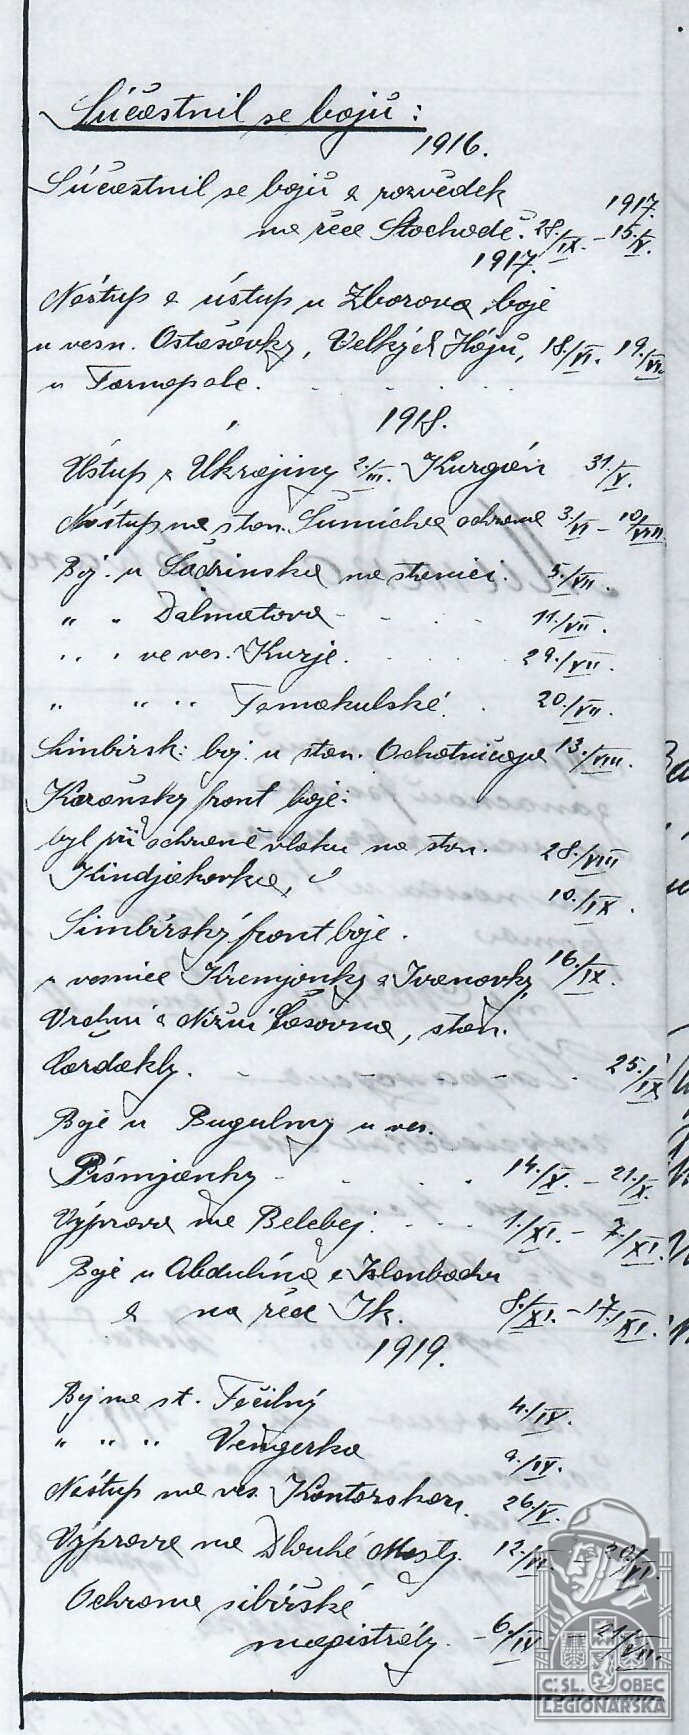 Súčastnil se bojů:
1916.
Súčastnil se bojů a rozvědek 1917.
na řece Stochodě. 28./IX. – 15./V.
1917.
Nástup a ústup u Zborova, boje
u vesn. Ostašovky, Velkých Hájů, 18./VI. 19./VII.
u Tarnopole. . . . .
1918.
Ústup z Ukrajiny 2./III. Kurgán 31./V.
Nástup na stan. Šumicha ochrana 3./VI – 10/VIII
Boj. u Šadrinska na stanici. 5./VII.
" " Dalmatova - - - 11./VII.
" " ve ves. Kurje. . . . 29./VII.
" " " Tamakulské. . 20./VII.
Simbirsk: boj. u stan. Ochotničaja 13./VIII.
Kazaňský front boje:
byl při ochraně vlaku na stan. 28./VIII
Kindjakovka, 10./IX.
Simbirský front boje.
z vesnice Kremjonky a Ivanovky 16./IX.
Vrchní a Nižní Časovna, stan.
Čardakly. - - - . 25./IX
Boje u Bugulmy u ves.
Pismjanky - . . . 14./X. – 21./X.
Výprava na Belebej. . - . 1./XI. – 7./XI.
Boje u Abdulina a
a na řece Ik. 8./XI. – 17./XI.
1919.
Boj na st. Tečilný 4./IV.
" " " Vengerka 9./IV.
Nástup na ves. Kontorskou. 26/V.
Výprava na Dlouhé Mosty. 12./VI. – 20./VI.
Ochrana sibiřské
magistrály. – 6./IV – 21/VII.
Č.SL. OBEC
LEGIONÁŘSKÁ